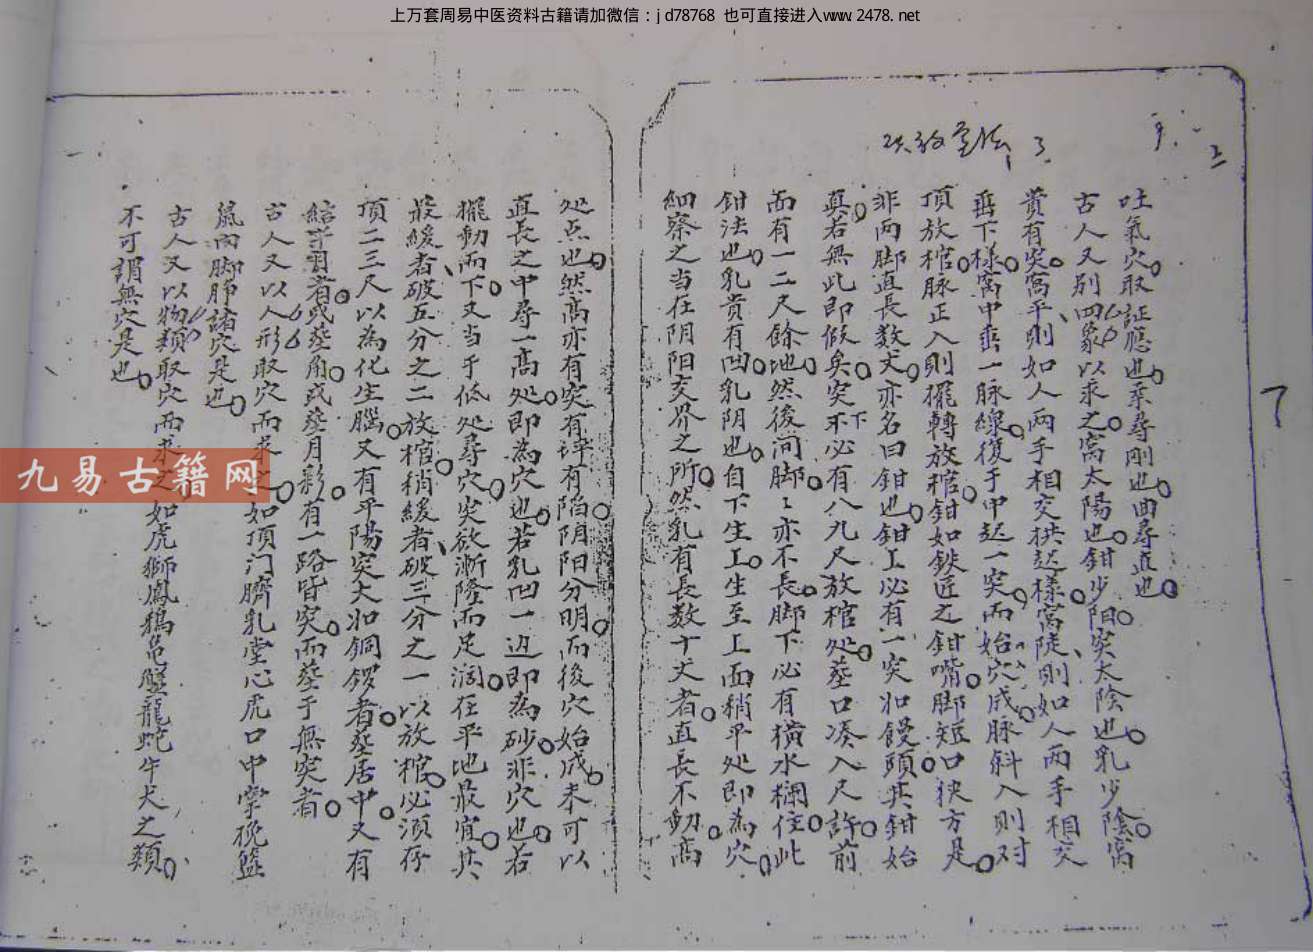 上万套周易中医资料古籍请加微信：jd78768 也可直接进入www.2478.net
吐氣穴取証應也柔尋剛也曲尋直也
古人又別四象以求之窩太陽也鉗少陽突太陰也乳少陰窩
貴有突窩平則如人兩手相交拱起樣窩陡則如人兩手相交
垂下樣窩中垂一脉線復于中起一突而始穴成脉斜入則对
頂放棺脉正入則擺轉放棺鉗如鉄匠之鉗嘴脚短口狹方是
非两脚直長数丈亦名曰鉗也鉗上必有一突如饅頭其鉗始
真若無此即假矣突下不必有八九尺放棺处葬口凑入尺許前
面有一二尺餘地然後间脚〻亦不長脚下必有横水欄住此
鉗法也乳貴有凹乳阴也自下生上生至上面稍平处即為穴
細察之当在阴阳交界之所然乳有長数十丈者直長不動高
处点也然高亦有突有有陷阴阳分明而後穴始成未可以
直長之中尋一高处即為穴也若乳凹一边即為砂非穴也若
擺動而下又当于低处尋穴突欲漸隆而足濶在平地最宜其
最緩者破五分之二放棺稍緩者破三分之一以放棺必須存
頂二三尺以為化生腦又有平陽突大如銅鑼者葬居中又有
者或葬角或葬月影有一路皆突而葬于無突者
古人又以人形取穴而求之如頂门臍乳堂心虎口中掌腕籃
鼠両脚肺諸穴是也
古人又以物類取穴而求之如虎獅鳳鵝黾蟹龍蛇牛犬之類
不可謂無穴是也
九易古籍网